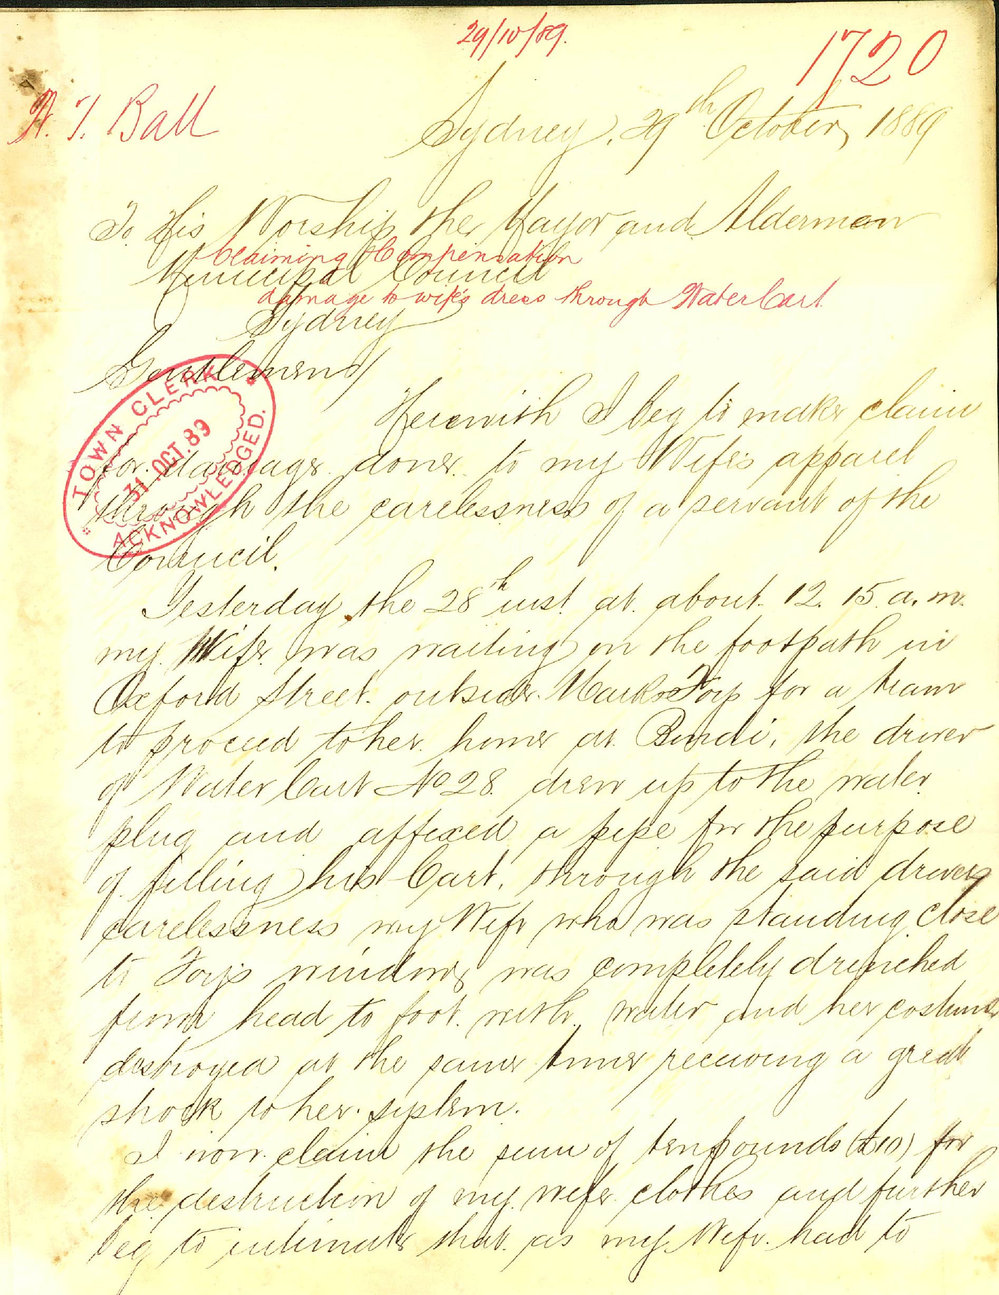 29/10/89.
1720
A. T. Ball
Sydney, 29th October, 1889
To His Worship the Mayor and Alderman
Claiming Compensation
Municipal Council
damage to wife's dress through Water Cart
Sydney
Gentlemen/
TOWN CLERK
31 OCT. 89
ACKNOWLEDGED.
Herewith I beg to make claim
for damage done to my Wife's apparel
through the carelessness of a servant of the
Council.
Yesterday the 28th inst. at about 12.15 a.m.
my Wife was waiting on the footpath in
Oxford Street outside Mark Foys for a tram
to proceed to her home at Bondi, the driver
of Water Cart No 28 drew up to the water
plug and affixed a pipe for the purpose
of filling his Cart, through the said drivers
carelessness my Wife who was standing close
to Foys window, was completely drenched
from head to foot with water and her costume
destroyed at the same time receiving a great
shock to her system.
I now claim the sum of ten pounds (£10) for
the destruction of my wife clothes and further
beg to intimate that as my Wife had to